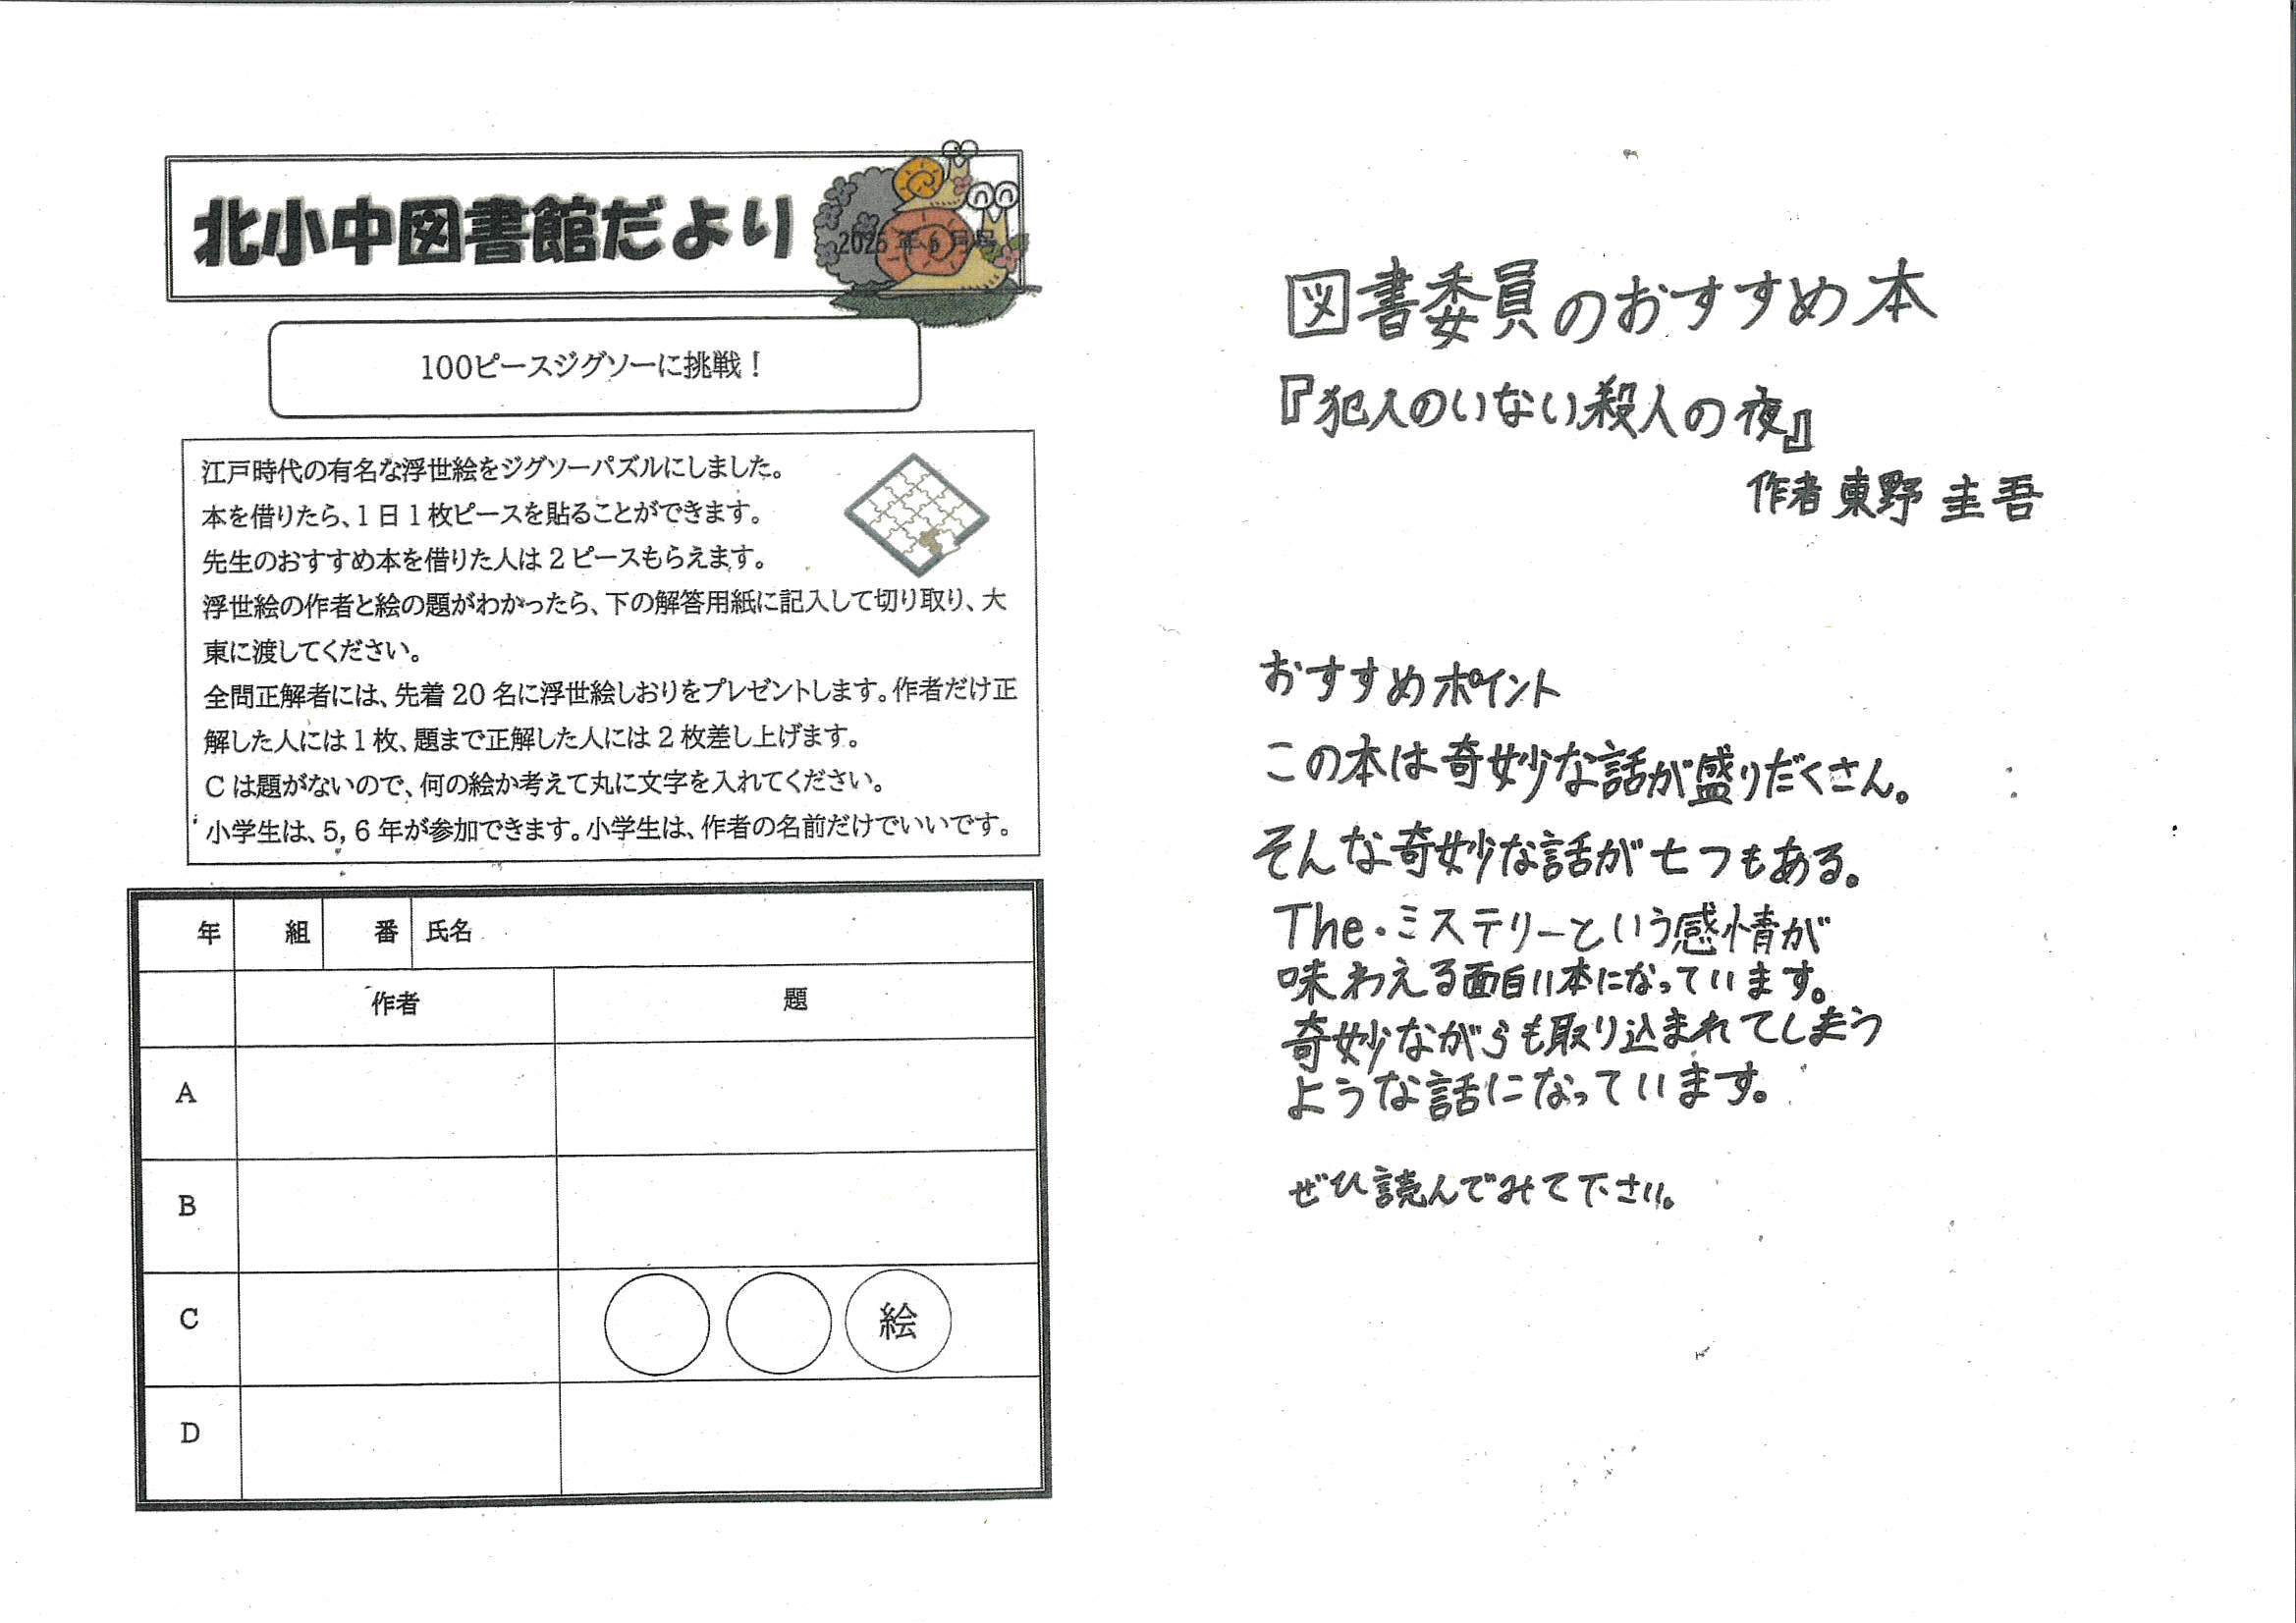 北小中図書館だより
2025年6月号
100ピースジグソーに挑戦！
江戸時代の有名な浮世絵をジグソーパズルにしました。
本を借りたら、1日1枚ピースを貼ることができます。
先生のおすすめ本を借りた人は2ピースもらえます。
浮世絵の作者と絵の題がわかったら、下の解答用紙に記入して切り取り、大
東に渡してください。
全問正解者には、先着20名に浮世絵しおりをプレゼントします。作者だけ正
解した人には1枚、題まで正解した人には2枚差し上げます。
Cは題がないので、何の絵か考えて丸に文字を入れてください。
小学生は、5，6年が参加できます。小学生は、作者の名前だけでいいです。
年 組 番 氏名
作者 題
A
B
C 絵
D
図書委員のおすすめ本
『犯人のいない殺人の夜』
作者 東野 圭吾
おすすめポイント
この本は奇妙な話が盛りだくさん。
そんな奇妙な話が七つもある。
The・ミステリーという感情が
味わえる面白い本になっています。
奇妙ながらも取り込まれてしまう
ような話になっています。
ぜひ読んでみて下さい。